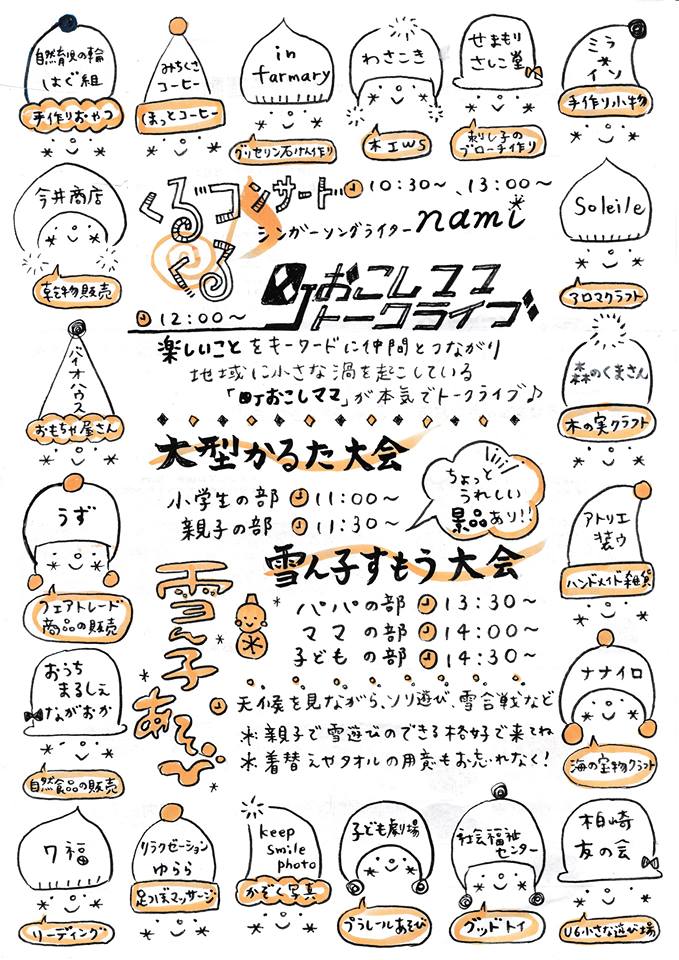 自然育児の輪
はぐ組
手作りおやつ
みちくさ
コーヒー
ほっとコーヒー
in
farmary
グリセリン石けん作り
わさこき
木工WS
せまもり
さしこ堂
刺し子の
ブローチ作り
ミラ
イソ
手作り小物
今井商店
乾物販売
ぐるぐるコンサート 10:30～、13:00～
シンガーソングライター nami
Soleile
アロマクラフト
12:00～
町おこしママ
トークライブ
楽しいことをキーワードに仲間とつながり
地域に小さな渦を起こしている
「町おこしママ」が本気でトークライブ♪
バイオハウス
おもちゃ屋さん
森のくまさん
木の実クラフト
大型かるた大会
小学生の部 11:00～
親子の部 11:30～
ちょっと
うれしい
景品あり!!
うず
フェアトレード
商品の販売
アトリエ
装ウ
ハンドメイド雑貨
雪ん子すもう大会
パパの部 13:30～
ママの部 14:00～
子どもの部 14:30～
雪ん子あそび
天候を見ながら、ソリ遊び、雪合戦など
※親子で雪遊びのできる格好で来てね
※着替えやタオルの用意もお忘れなく!
おうち
まるしぇ
ながおか
自然食品の販売
ナナイロ
海の宝物クラフト
7福
リーディング
リラクゼーション
ゆらら
足つぼマッサージ
keep
smile
photo
かぞく写真
子ども劇場
プラレールあそび
社会福祉
センター
グッドトイ
柏崎
友の会
U6小さな遊び場